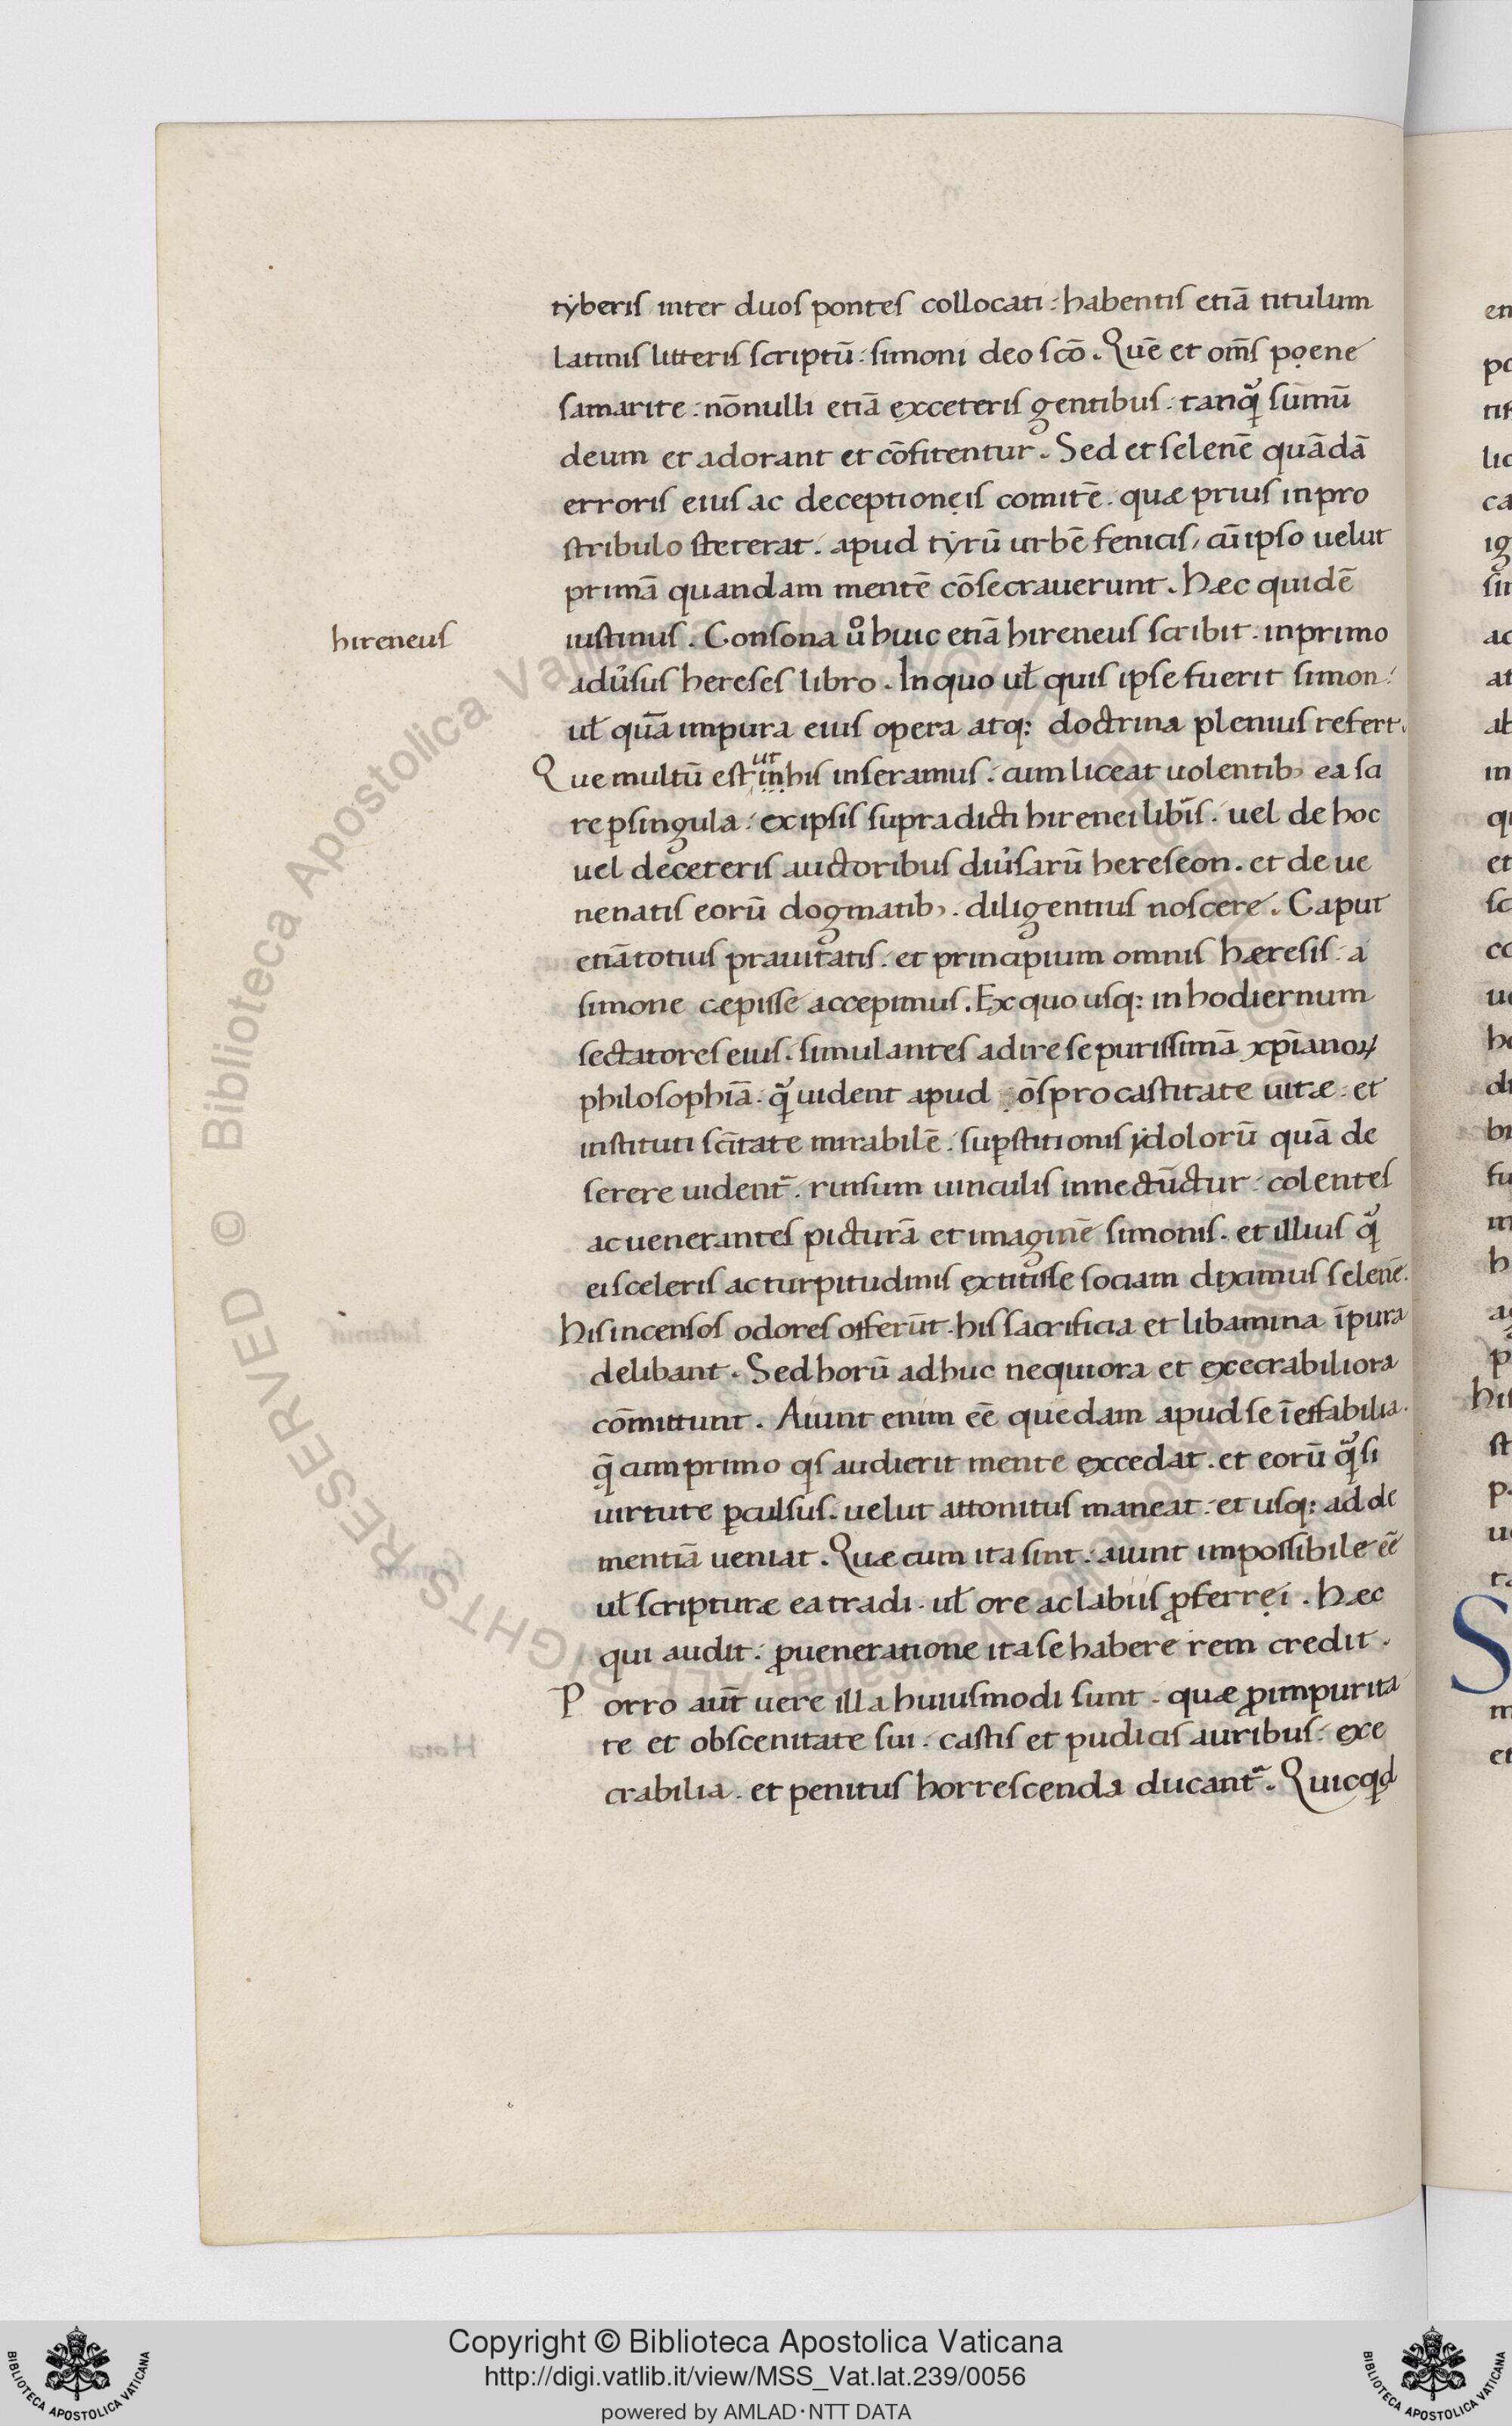 hireneus
tẏberis inter duos pontes collocati : habentis etiā titulum
latinis litteris scriptū : simoni deo scō . Quē et om̄s pọene
samarite : nōnulli etiā exceteris gentibus : tanqͣ̄ sum̄ū
deum et adorant et cōfitentur . Sed et selenē quādā
erroris eius ac deceptionẹis comitē . quæ prius inpro
stribulo steterat . apud tẏrū urbē fenicis, cū ipso uelut
primā quandam mentē cōsecrauerunt . hæc quidē
iustinus . Consona ů huic etiā hireneus scribit . inprimo
adu̓sus hereses libro . Inquo ul̄ quis ipse fuerit simon :
ul̄ quā impura eius opera atq: doctrina plenius refert .
Que multū est ut in his inseramus . cum liceat uolentib; ea sci
re p̱singula : exipsis supradicti hirenei libr̄is . uel de hoc
uel deceteris auctoribus diu̓sarū hereseon . et de ue
nenatis eorū dogmatib; . diligentius noscere . Caput
etiā totius prauitatis . et principium omnis hæresis : a
simone cepisse accepimus . Ex quo usq: in hodiernum
sectatores eius . simulantes adire se purissimā xp̄ianoꝝ
philosophiā . qͣ̄ uident apud ōs pro castitate uitæ : et
instituti sc̄itate mirabilē . sup̱stitionis ydolorū quā de
serere uident̄ . rursum uinculis innectūctur : colentes
ac uenerantes picturā et imaginē simonis . et illius qͣ̄
ei sceleris ac turpitudinis extitisse sociam diximus selenē .
his incensos odores offerūt . his sacrificia et libamina īpura
delibant . Sed horū adhuc nequiora et execrabiliora
cōmittunt . Aiunt enim ēē quedam apud se īeffabilia .
q̄ cum primo qis audierit mente excedat . et eorū qͣ̄si
uirtute ꝑculsus . uelut attonitus maneat : et usq: ad de
mentiā ueniat . Quæ cum ita sint : aiunt impossibile ēē
ul̄ scripturæ ea tradi . ul̄ ore ac labiis ꝓferrẹi . hæc
qui audit : ꝓ ueneratione ita se habere rem credit .
Porro aūt uere illa huiusmodi sunt . quæ ꝓ impurita
te et obscenitate sui . castis et pudicis auribus : exe
crabilia . et penitus horrescenda ducant̄ . Quicqd
Copyright © Biblioteca Apostolica Vaticana
http://digi.vatlib.it/view/MSS_Vat.lat.239/0056
powered by AMLAD·NTT DATA